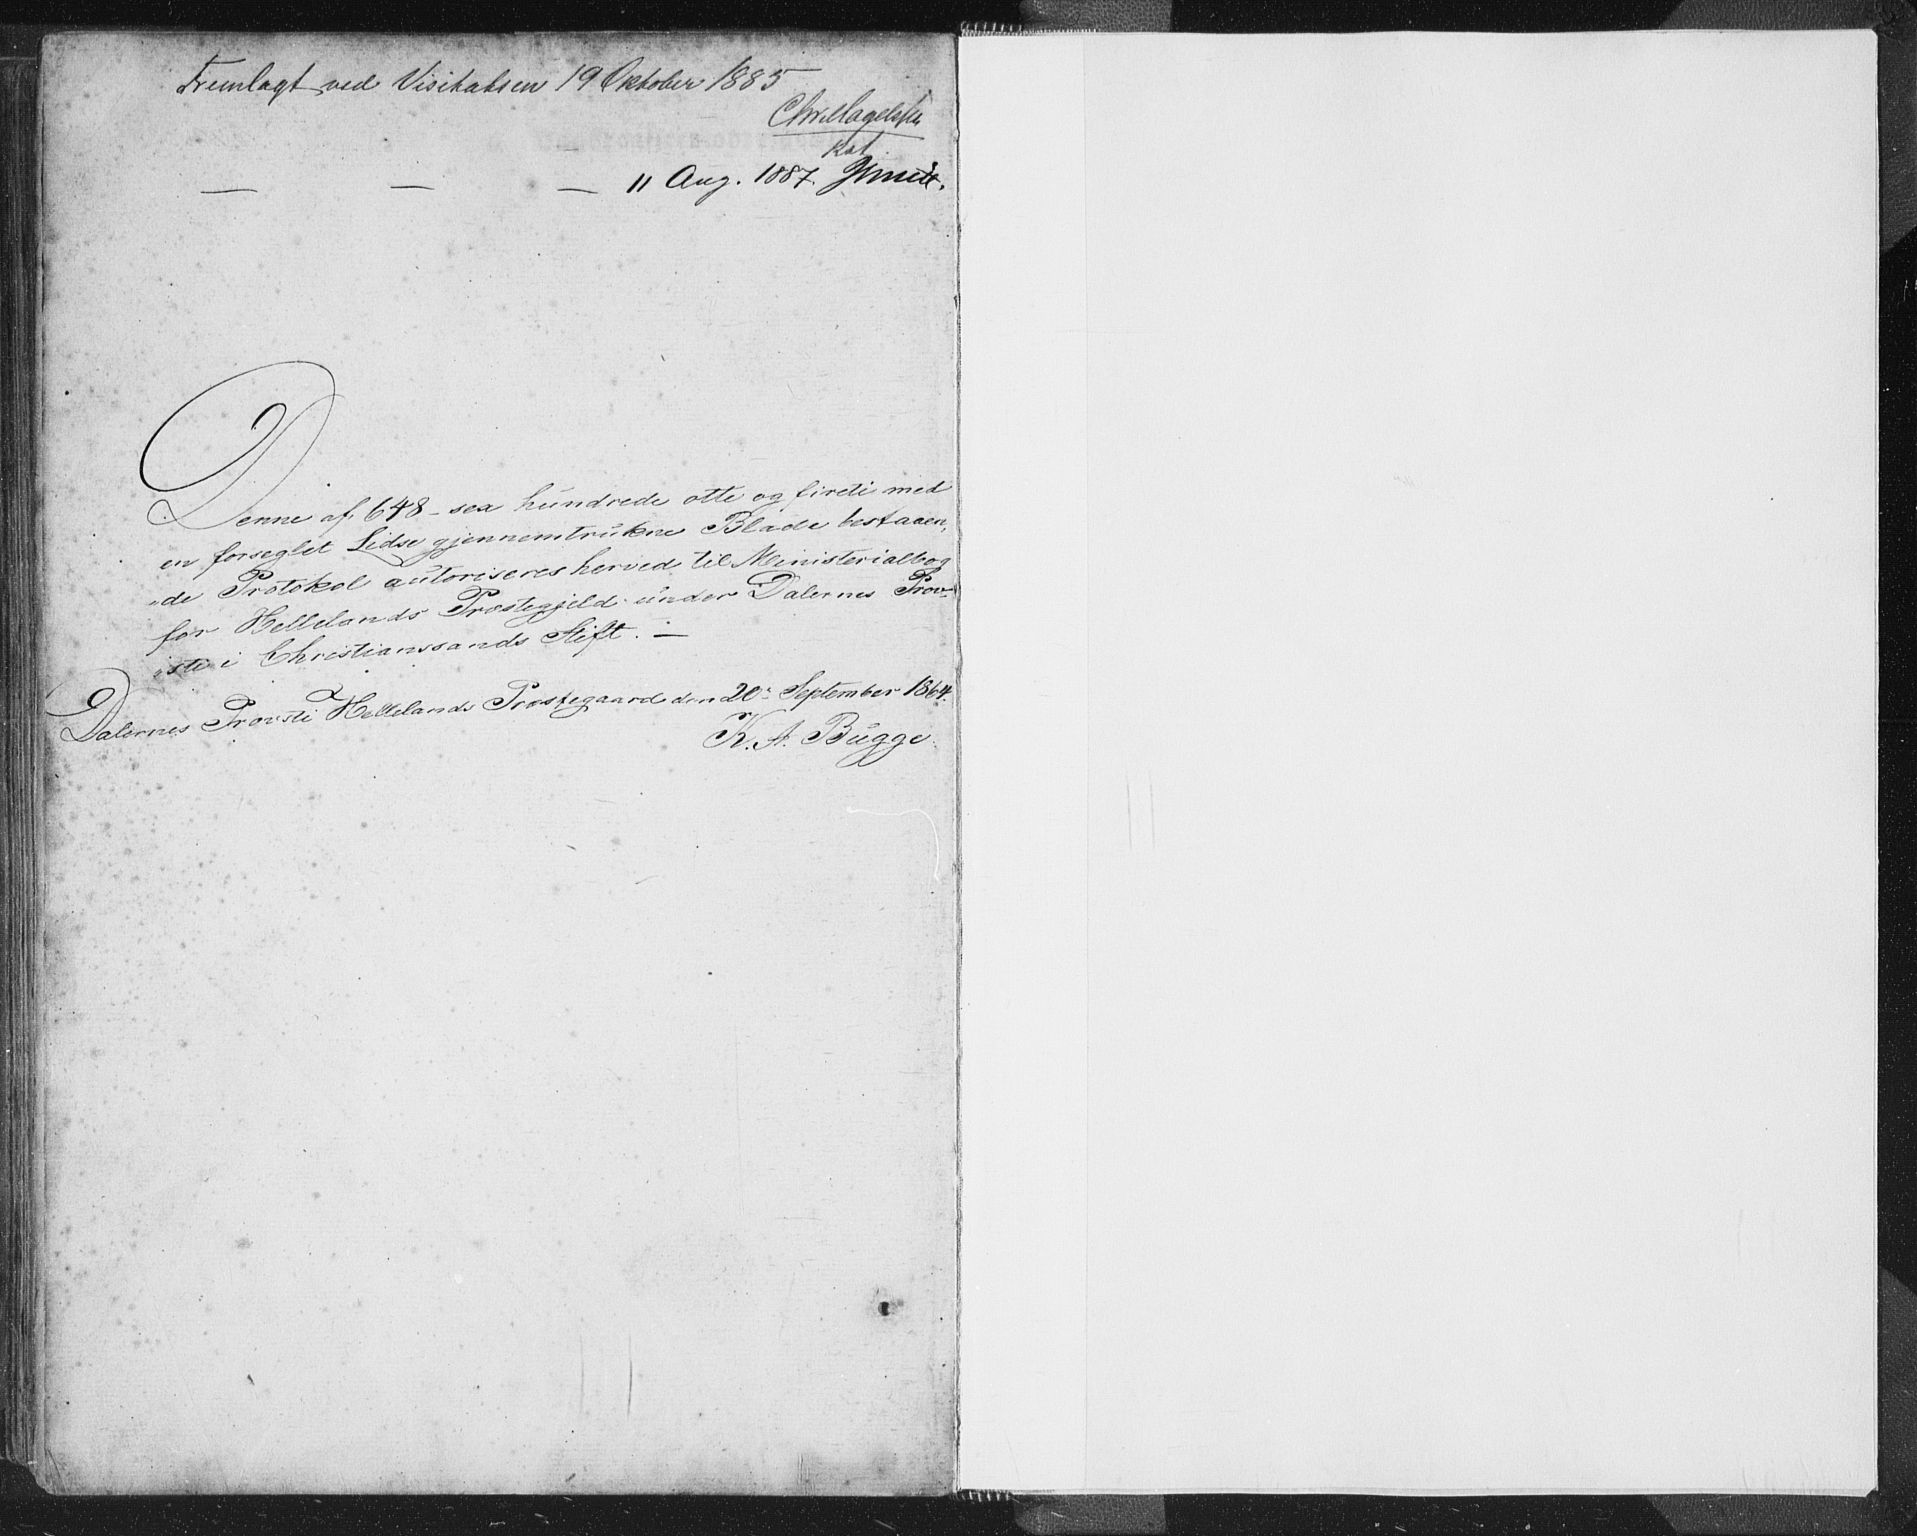 Fremlagt ved Visitatsen 19 Oktober 1885
— — — 11 Aug. 1887.
Denne af 648 - sex hundrede otte og fireti med
en forseglet Lidse gjennemtrukne Blade bestaaen,
„de Protokol autoriseres herved til Ministerialbog
for Hellelands Præstegjeld under Dalernes Prov-
„sti i Christianssands Stift. —
Dalernes Provsti Hellelands Præstegaard den 20. September 1864.
K. A. Bugge.